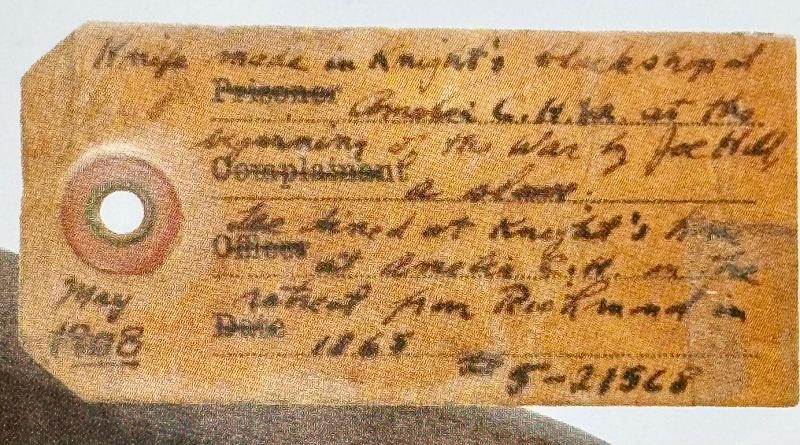 Knife made in Knight's blackshop at
Prisoner
Amelei C.H. Va. at the
beginning of the War by Joe Hill,
Complainant
a slave.
Lee tined at Knight's
Officer
at Amelei C.H. on the
retreat from Richmond in
May
Date
1908
1865
#5-21568